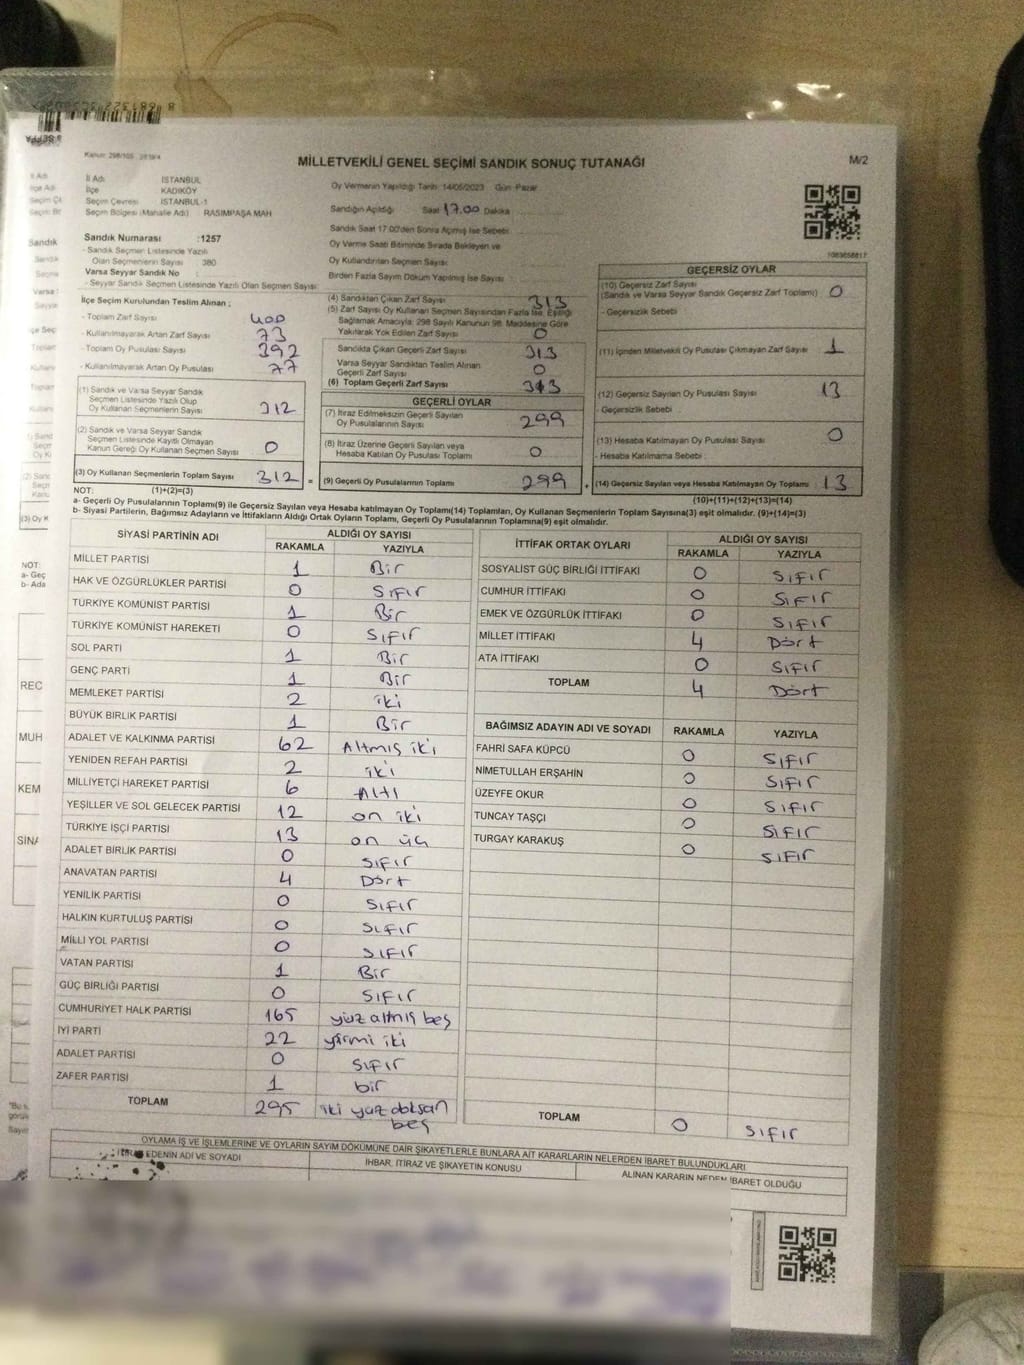 Kanun: 298/105
MİLLETVEKİLİ GENEL SEÇİMİ SANDIK SONUÇ TUTANAĞI
M/2
İl Adı İSTANBUL
İlçe KADIKÖY
Seçim Çevresi İSTANBUL-1
Seçim Bölgesi (Mahalle Adı) RASIMPAŞA MAH
Oy Vermenin Yapıldığı Tarih: 14/05/2023 Gün: Pazar
Sandığın Açıldığı Saat 17.00 Dakika
Sandık Saat 17.00'den Sonra Açılmış İse Sebebi
Oy Verme Saati Bitiminde Sırada Bekleyen ve
Oy Kullandırılan Seçmen Sayısı
Birden Fazla Sayım Döküm Yapılmış İse Sayısı
Sandık Numarası :1257
- Sandık Seçmen Listesinde Yazılı
Olan Seçmenlerin Sayısı : 380
Varsa Seyyar Sandık No :
- Seyyar Sandık Seçmen Listesinde Yazılı Olan Seçmen Sayısı:
İlçe Seçim Kurulundan Teslim Alınan ;
- Toplam Zarf Sayısı 400
- Kullanılmayarak Artan Zarf Sayısı 73
- Toplam Oy Pusulası Sayısı 392
- Kullanılmayarak Artan Oy Pusulası 77
(1) Sandık ve Varsa Seyyar Sandık
Seçmen Listesinde Yazılı Olup
Oy Kullanan Seçmenlerin Sayısı 312
(2) Sandık ve Varsa Seyyar Sandık
Seçmen Listesinde Kayıtlı Olmayan
Kanun Gereği Oy Kullanan Seçmen Sayısı 0
(3) Oy Kullanan Seçmenlerin Toplam Sayısı 312 =
(4) Sandıktan Çıkan Zarf Sayısı 313
(5) Zarf Sayısı Oy Kullanan Seçmen Sayısından Fazla İse, Eşitliği
Sağlamak Amacıyla; 298 Sayılı Kanunun 98. Maddesine Göre
Yakılarak Yok Edilen Zarf Sayısı 0
Sandıkta Çıkan Geçerli Zarf Sayısı 313
Varsa Seyyar Sandıktan Teslim Alınan
Geçerli Zarf Sayısı 0
(6) Toplam Geçerli Zarf Sayısı 313
GEÇERLİ OYLAR
(7) İtiraz Edilmeksizin Geçerli Sayılan
Oy Pusulalarının Sayısı 299
(8) İtiraz Üzerine Geçerli Sayılan veya
Hesaba Katılan Oy Pusulası Toplamı 0
(9) Geçerli Oy Pusulalarının Toplamı 299 +
GEÇERSİZ OYLAR
(10) Geçersiz Zarf Sayısı
(Sandık ve Varsa Seyyar Sandık Geçersiz Zarf Toplamı) 0
- Geçersizlik Sebebi
(11) İçinden Milletvekili Oy Pusulası Çıkmayan Zarf Sayısı 1
(12) Geçersiz Sayılan Oy Pusulası Sayısı 13
- Geçersizlik Sebebi
(13) Hesaba Katılmayan Oy Pusulası Sayısı 0
- Hesaba Katılmama Sebebi :
(14) Geçersiz Sayılan veya Hesaba Katılmayan Oy Toplamı 13
NOT: (1)+(2)=(3)
(10)+(11)+(12)+(13)=(14)
a- Geçerli Oy Pusulalarının Toplamı(9) ile Geçersiz Sayılan veya Hesaba Katılmayan Oy Toplamı(14) Toplamları, Oy Kullanan Seçmenlerin Toplam Sayısına(3) eşit olmalıdır. (9)+(14)=(3)
b- Siyasi Partilerin, Bağımsız Adayların ve İttifakların Aldığı Ortak Oyların Toplamı, Geçerli Oy Pusulalarının Toplamına(9) eşit olmalıdır.
SİYASİ PARTİNİN ADI ALDIĞI OY SAYISI
RAKAMLA YAZIYLA
MİLLET PARTİSİ 1 Bir
HAK VE ÖZGÜRLÜKLER PARTİSİ 0 Sıfır
TÜRKİYE KOMÜNİST PARTİSİ 1 Bir
TÜRKİYE KOMÜNİST HAREKETİ 0 Sıfır
SOL PARTİ 1 Bir
GENÇ PARTİ 1 Bir
MEMLEKET PARTİSİ 2 iki
BÜYÜK BİRLİK PARTİSİ 1 Bir
ADALET VE KALKINMA PARTİSİ 62 Altmış iki
YENİDEN REFAH PARTİSİ 2 iki
MİLLİYETÇİ HAREKET PARTİSİ 6 Altı
YEŞİLLER VE SOL GELECEK PARTİSİ 12 on iki
TÜRKİYE İŞÇİ PARTİSİ 13 on üç
ADALET BİRLİK PARTİSİ 0 Sıfır
ANAVATAN PARTİSİ 4 Dört
YENİLİK PARTİSİ 0 Sıfır
HALKIN KURTULUŞ PARTİSİ 0 Sıfır
MİLLİ YOL PARTİSİ 0 Sıfır
VATAN PARTİSİ 1 Bir
GÜÇ BİRLİĞİ PARTİSİ 0 Sıfır
CUMHURİYET HALK PARTİSİ 165 yüz altmış beş
İYİ PARTİ 22 yirmi iki
ADALET PARTİSİ 0 Sıfır
ZAFER PARTİSİ 1 bir
TOPLAM 295 iki yüz doksan
beş
İTTİFAK ORTAK OYLARI ALDIĞI OY SAYISI
RAKAMLA YAZIYLA
SOSYALİST GÜÇ BİRLİĞİ İTTİFAKI 0 Sıfır
CUMHUR İTTİFAKI 0 Sıfır
EMEK VE ÖZGÜRLÜK İTTİFAKI 0 Sıfır
MİLLET İTTİFAKI 4 Dört
ATA İTTİFAKI 0 Sıfır
TOPLAM 4 Dört
BAĞIMSIZ ADAYIN ADI VE SOYADI RAKAMLA YAZIYLA
FAHRİ SAFA KÜPCÜ 0 Sıfır
NİMETULLAH ERŞAHİN 0 Sıfır
ÜZEYFE OKUR 0 Sıfır
TUNCAY TAŞÇI 0 Sıfır
TURGAY KARAKUŞ 0 Sıfır
TOPLAM 0 Sıfır
OYLAMA İŞ VE İŞLEMLERİNE VE OYLARIN SAYIM DÖKÜMÜNE DAİR ŞİKAYETLERLE BUNLARA AİT KARARLARIN NELERDEN İBARET BULUNDUKLARI
EDENİN ADI VE SOYADI
İHBAR, İTİRAZ VE ŞİKAYETİN KONUSU
ALINAN KARARIN NEDEN İBARET OLDUĞU